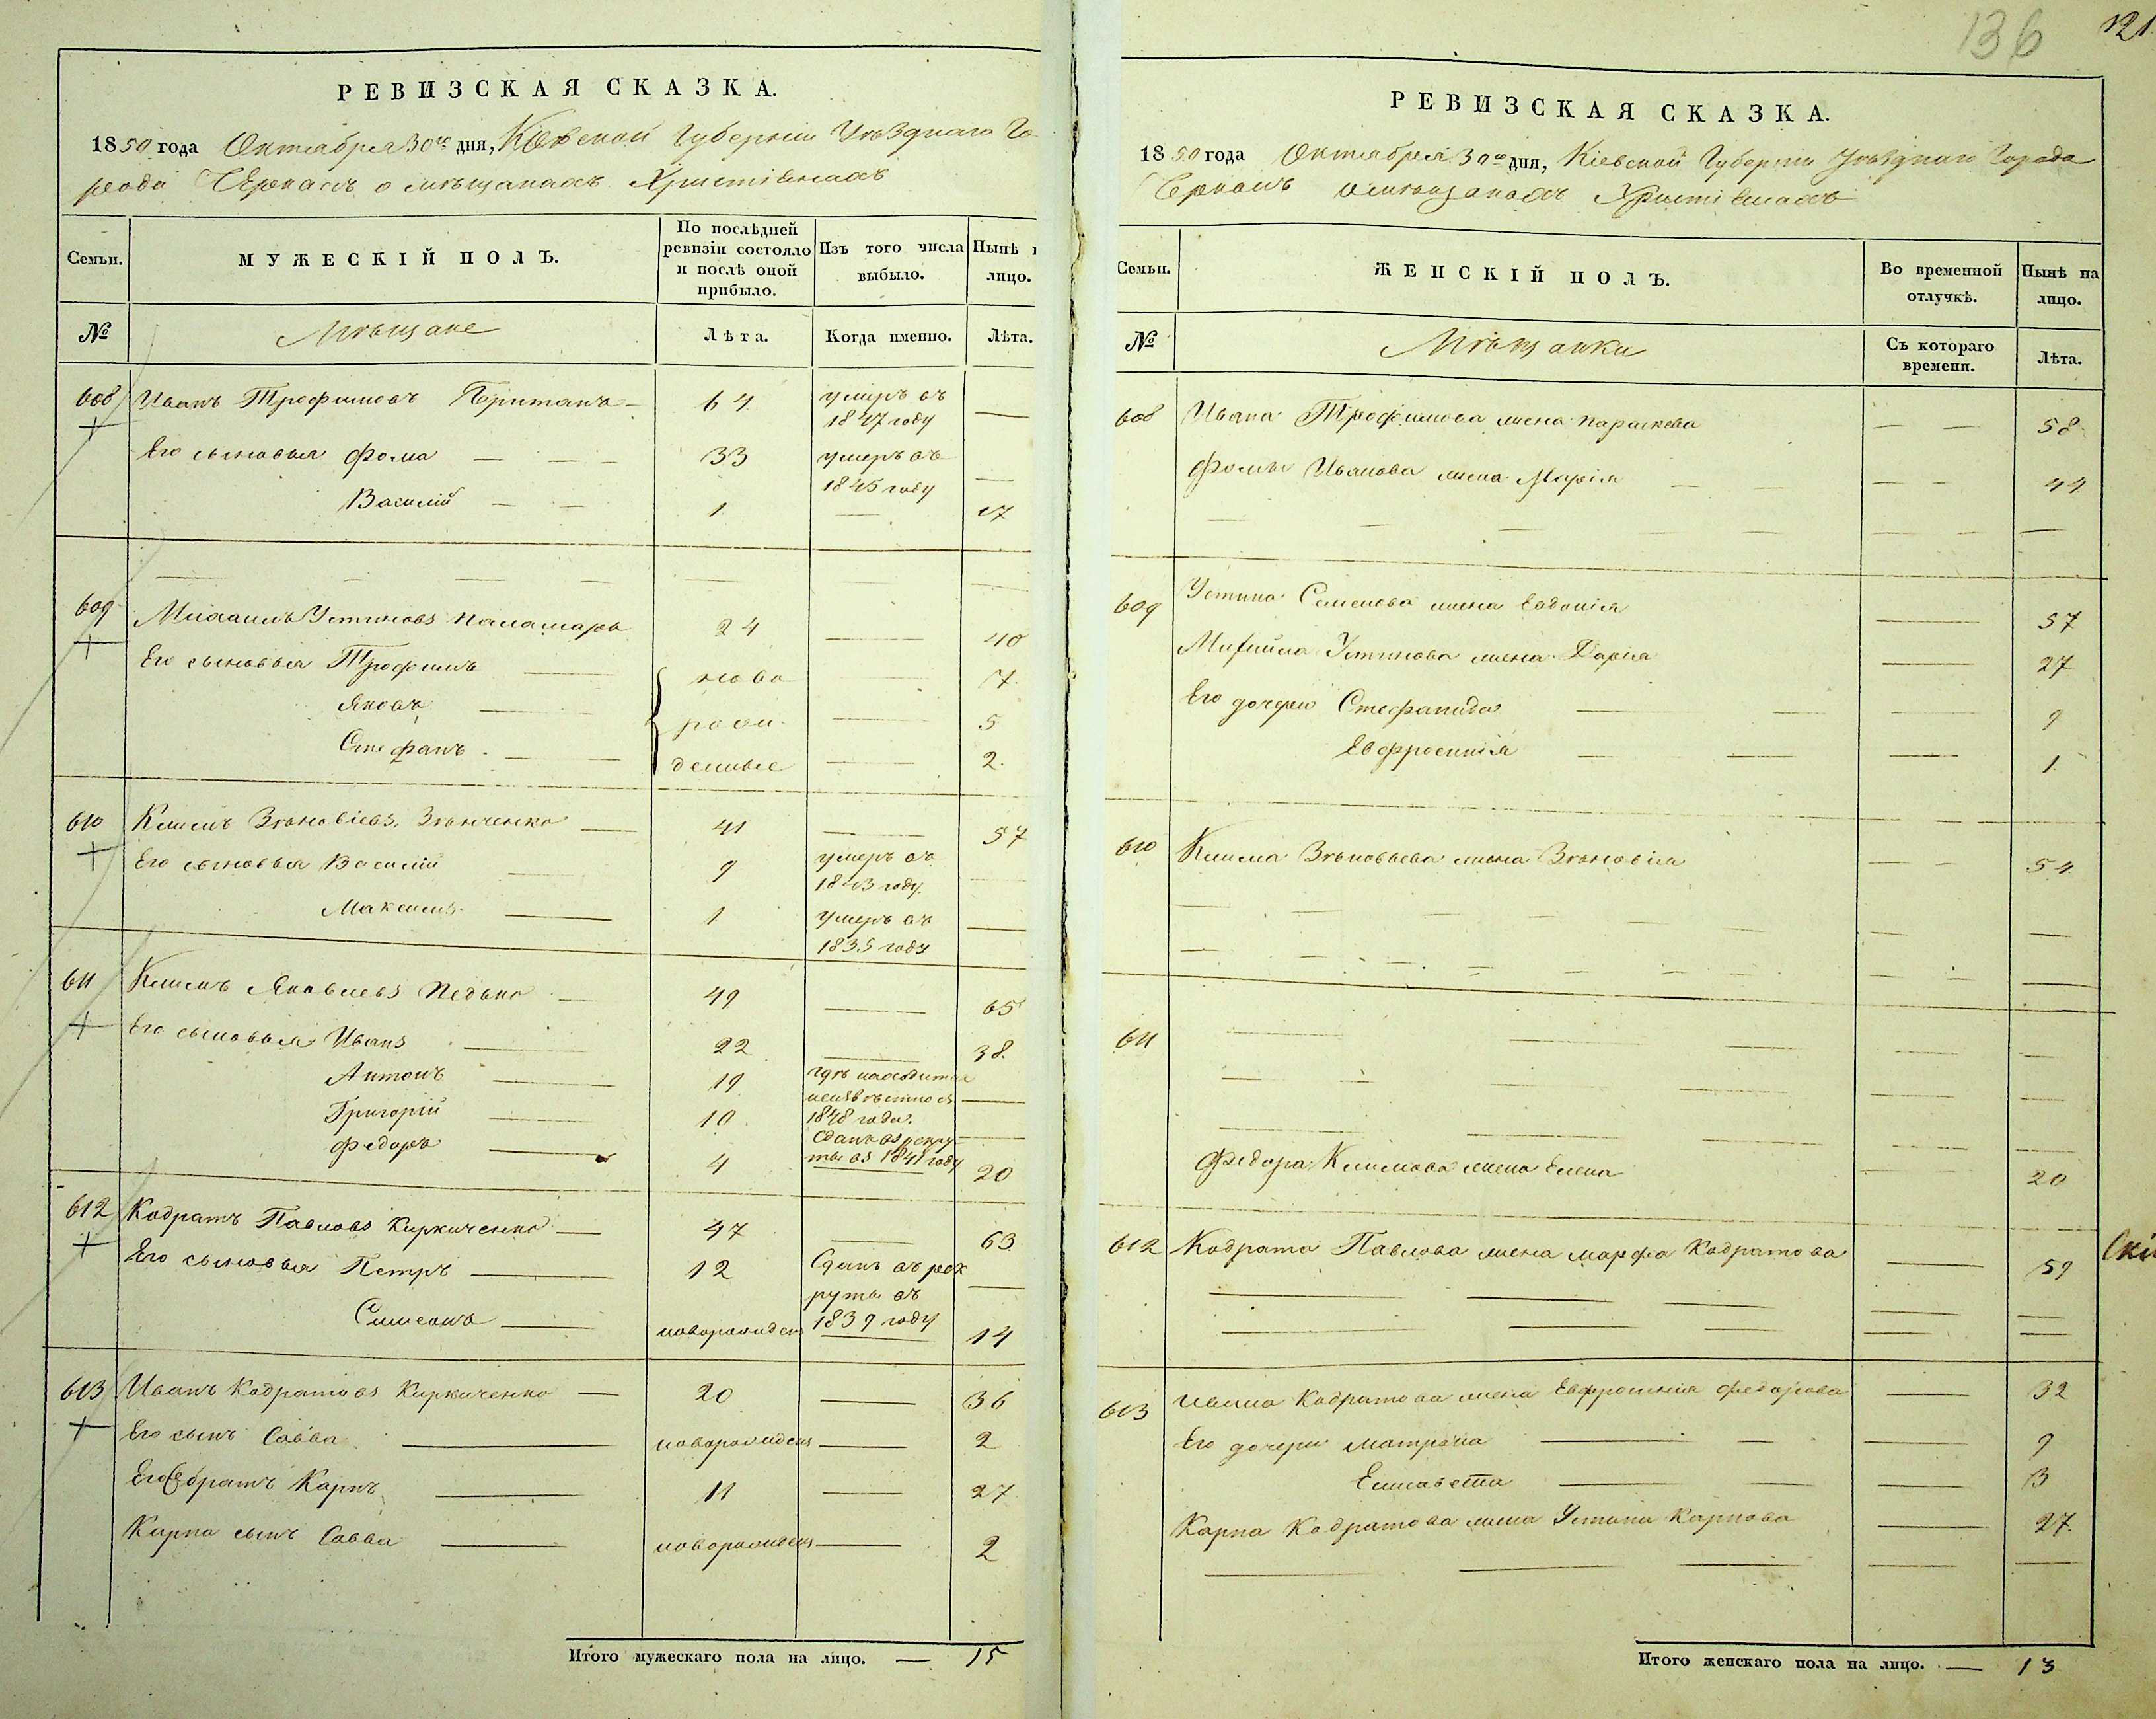 РЕВИЗСКАЯ СКАЗКА.
1850 года Октября 30го дня, Кіевской Губерніи Уѣзднаго Го-
рода Черкасъ о мѣщанахъ Христіянахъ
Семьи.
МУЖЕСКІЙ ПОЛЪ.
По послѣдней ревизіи состояло и послѣ оной прибыло.
Изъ того числа выбыло.
Нынѣ
лицо.
№
Мѣщане
Лѣта.
Когда именно.
Лѣта.
608 Иванъ Трофимовъ 64 умеръ въ 1847 году —
Его сыновья Фома — — — 33 умеръ въ 1845 году —
Василій — — 1 — 17
609 Михаилъ Устиновъ Паламарь 24 — 40
Его сыновья Трофимъ — ново — 7.
Яковъ — рож — 5
Стефанъ — денные — 2.
610 Климъ Зѣновіевъ Зѣнченко — 41 — 57
Его сыновья Василій — 9 умеръ въ 1843 году. —
Максимъ — 1 умеръ въ 1835 году —
611 Климъ Яковлевъ Педько — 49 — 65
Его сыновья Иванъ — 22 — 38.
Антонъ — 19 гдѣ находится неизвѣстно съ 1848 года. —
Григорій — 10. сданъ въ рекру- ты въ 1841 году —
Федоръ — 4 — 20
612 Кодратъ Павловъ Киркиченко — 47 — 63.
Его сыновья Петръ — 12 Сданъ въ рек руты въ 1839 году —
Симеонъ — новорожден — 14
613 Иванъ Кодратовъ Киркиченко — 20 — 36
Его сынъ Савва — новорожден — 2
Его братъ Карпъ — 11 — 27
Карпа сынъ Савва — новорожден — 2
Итого мужескаго пола на лицо. — 15
136
121
РЕВИЗСКАЯ СКАЗКА.
1850 года Октября 30го дня, Кіевской Губерніи Уѣзднаго Города
Черкасъ о мѣщанахъ Христіянахъ
Семьи.
ЖЕНСКІЙ ПОЛЪ.
Во временной отлучкѣ.
Нынѣ на лицо.
№
Мѣщанки
Съ котораго времени.
Лѣта.
608 Ивана Трофимова жена Параскева — — 58
Фомы Иванова жена Марія — — 44
609 Устина Семенова жена Евдокія — 57
Михайла Устинова жена Дарія — 27
Его дочери Стефанида — 9
Евфросинія — 1.
610 Клима Зѣновьева жена Зѣновія — — 54.
611
Федора Климова жена Елена — 20
612 Кодрата Павлова жена Марфа Кодратова — 59
613 Ивана Кодратова жена Евфросинія Федорова — 32
Его дочери Матрона — 9
Елисавета — 3
Карпа Кодратова жена Устина Карпова — 27.
Итого женскаго пола на лицо. — 13